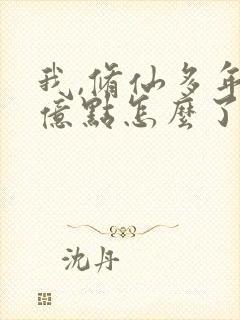 我,脩仙多年
億點怎麼了
沈丹